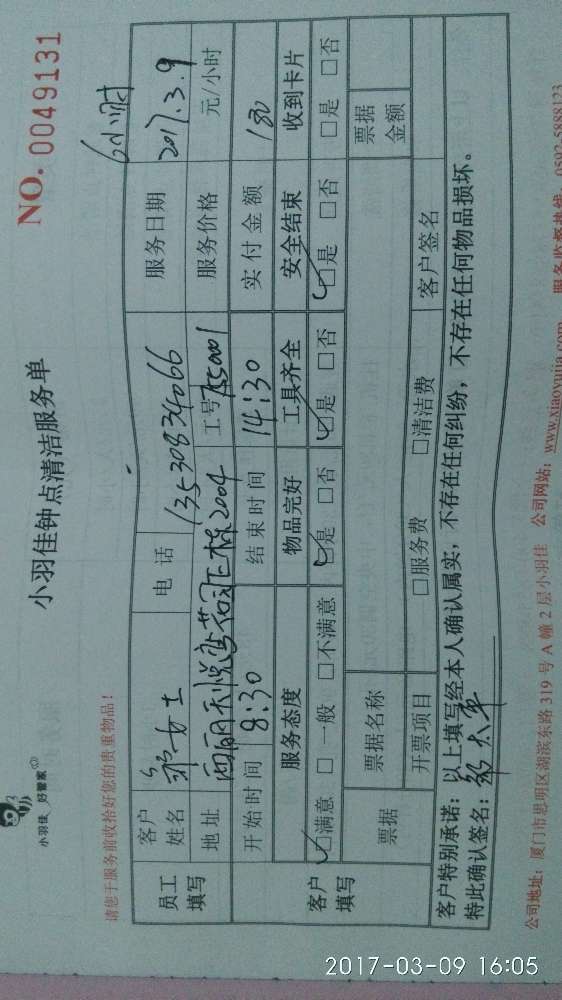 小羽佳 好管家
小羽佳钟点清洁服务单
NO. 0049131
请您于服务前收拾好您的贵重物品！
6小时
员工填写
客户姓名 女士 电话 13530834066 服务日期 2017.3.9
地址 2004 工号 服务价格 元/小时
开始时间 8:30 结束时间 14:30 实付金额 180
客户填写
服务态度 物品完好 工具齐全 安全结束 收到卡片
☑满意 □一般 □不满意 ☑是 □否 ☑是 □否 ☑是 □否 □是 □否
票据 票据名称 票据金额
开票项目 □服务费 □清洁费 客户签名
客户特别承诺：以上填写经本人确认属实，不存在任何纠纷，不存在任何物品损坏。
特此确认签名：
公司地址：厦门市思明区湖滨东路 319 号 A 幢 2 层小羽佳 公司网站：www.xiaoyujia.com 服务监督热线：0592-5888123
2017-03-09 16:05